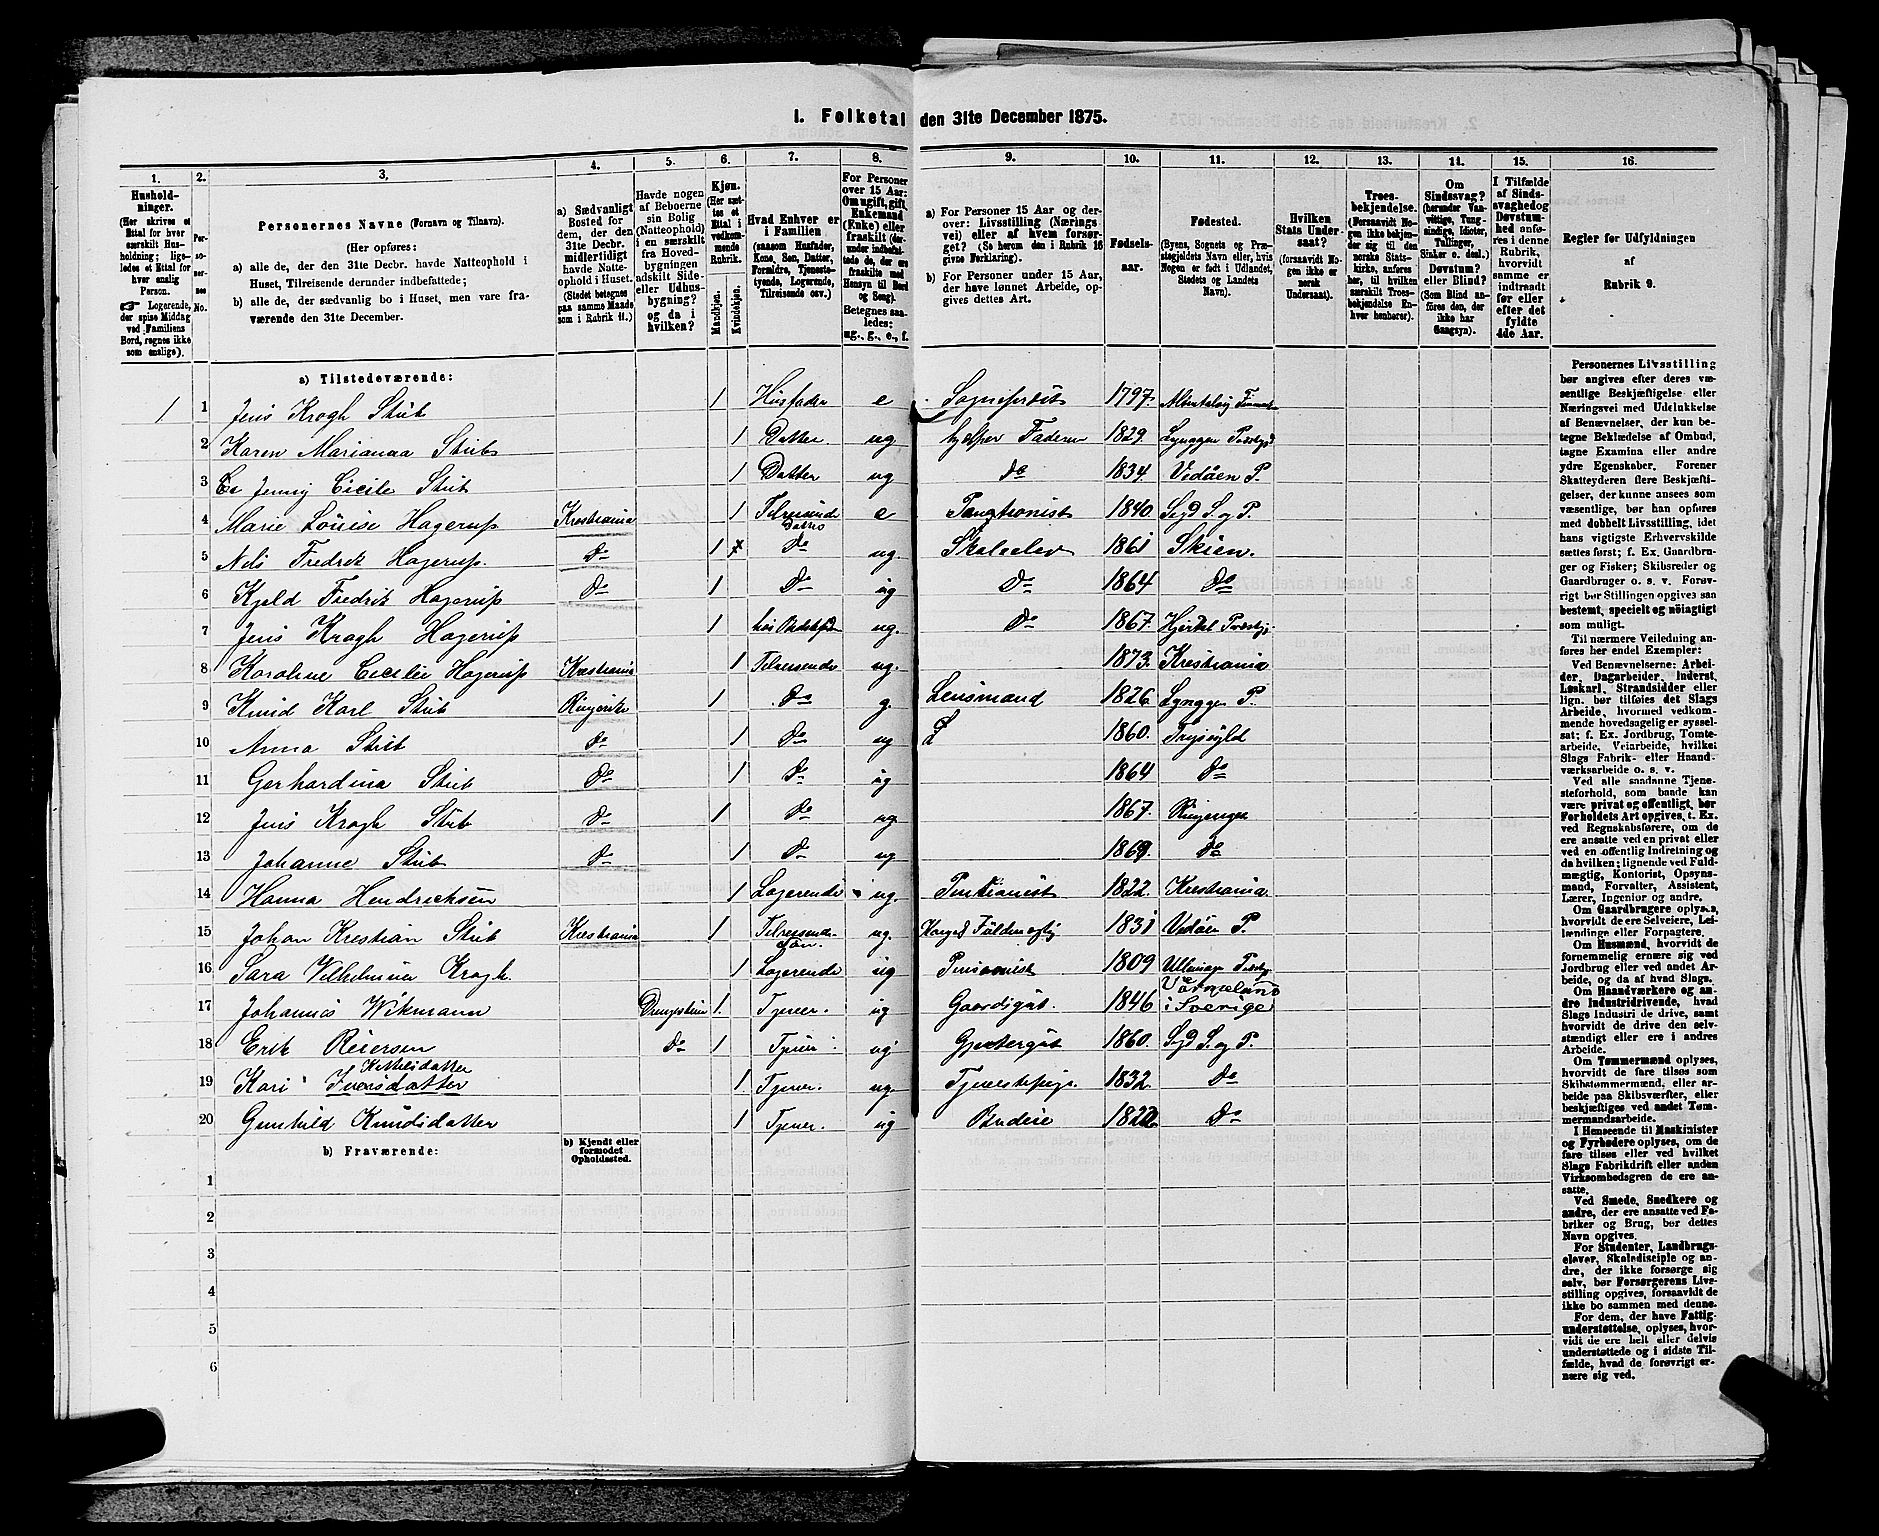 1. Folketal den 31te December 1875.
1. 2. 3. 4. 5. 6. 7. 8. 9. 10. 11. 12. 13. 14. 15. 16.
Hushold-
ninger.
(Her skrives et
Ettal for hver
særskilt Hus-
holdning; lige-
ledes et Ettal for
hver enslig
Person.
☞ Logerende,
der spise Middag
ved Familiens
Bord, regnes ikke
som enslige).
Per-
so-
ner-
nes
No.
Personernes Navne (Fornavn og Tilnavn).
(Her opføres:
a) alle de, der den 31te Decbr. havde Natteophold i
Huset, Tilreisende derunder indbefattede;
b) alle de, der sædvanlig bo i Huset, men vare fra-
værende den 31te December.
a) Sædvanligt
Bosted for
dem, der den
31te Decbr.
midlertidigt
havde Natte-
ophold i Huset.
(Stedet betegnes
paa samme Maade
som i Rubrik 11.)
Havde nogen
af Beboerne
sin Bolig
(Natteophold)
i en særskilt
fra Hoved-
bygningen
adskilt Side-
eller Udhus-
bygning?
og da i
hvilken?
Kjøn.
(Her sæt-
tes et
Ettal i
vedkom-
mende
Rubrik.
Mandkjøn.
Kvindekjøn.
Hvad Enhver er
i Familien
(saasom Husfader,
Kone, Søn, Datter,
Forældre, Tjeneste-
tyende, Logerende,
Tilreisende osv.)
For Personer
over 15 Aar:
Om ugift, gift,
Enkemand
(Enke) eller
fraskilt (der-
under indbefat-
tede de, der ere
fraskilte med
Hensyn til Bord
og Seng).
Betegnes saa-
ledes:
ug., g., e., f.
a) For Personer 15 Aar og der-
over: Livsstilling (Nærings
vei) eller af hvem forsør-
get? (Se herom den i Rubrik 16
givne Forklaring).
b) For Personer under 15 Aar,
der have lønnet Arbeide, op-
gives dettes Art.
Fødsels-
aar.
Fødested.
(Byens, Sognets og Præ-
stegjeldets Navn eller, hvis
Nogen er født i Udlandet,
Stedets og Landets
Navn).
Hvilken
Stats Under-
saat?
(forsaavidt No-
gen ikke er
norsk
Undersaat).
Troes-
bekjendelse.
(Forsaavidt No-
gen ikke bekjen-
der sig til den
norske Stats-
kirke, anføres
her, til hvilken
særskilt Troes-
bekjendelse En-
hver henhører).
Om
Sindssvag?
(herunder Van-
vittige, Tung-
sindige, Idioter,
Tullinger,
Sinker o. desl.)
Døvstum?
eller Blind?
(Som Blind an-
føres den, der
ikke har
Gangsyn).
I Tilfælde
af Sinds-
svaghed og
Døvstum-
hed anfø-
res i denne
Rubrik,
hvorvidt
samme er
indtraadt
før eller
efter det
fyldte
4de Aar.
Regler for Udfyldningen
af
Rubrik 9.
a) Tilstedeværende:
1 1 Jens Krogh Stub 1 Husfader e Sogneprest 1797.
2 Karen Marianaa Stub 1 Datter. ug hjelper Faderen 1829. Lynggen Præstgj
3 Jenny Cicile Stub 1 Datter ug do 1834. Vedøen P.
4 Marie Louise Hagerup Krestiania 1 Tilreisende Datter e Pangtionist 1840. Sgd S. og P.
5 Nils Fredrik Hagerup. Do 1 Do ug. Skoleelev 1861 Skien.
6 Kjeld Fredrik Hagerup Do 1 Do ug Do 1864 Do
7 Jens Krogh Hagerup 1 hos ug. Do 1867. Hjerdal Præstgj.
8 Karoline Cecilie Hagerup Krestiania 1 Tilreisende ug. 1873. Krestiania
9 Knud Karl Stub Ringerike 1 Do g. Lensmand 1826. Lynggen P.
10 Anna Stub Do 1 Do ug 1860. Trysyld
11 Gerhardina Stub Do 1 Do ug 1864 Do
12 Jens Krogh Stub Do 1 Do ug 1867.
13 Johanne Stub Do 1 Do ug 1869. Do
14 Hanna Hendricksen 1 Logerende ug. Pentionist 1822. Krestiania
15 Johan Krestian Stub Krestiania 1 Tilreisende Søn. ug. 1831 Vedøen P.
16 Sara Vilhelmina Krogh. 1 Logerende ug Pensionist 1809
17 Johannes Wikmann 1. Tjener. ug Gaardsgut. 1846 Värmeland i Sverige
18 Erik Reiersen do 1 Tjener. ug Gjetergut 1860. Sgd S. og P.
19 Kari Iversdatter Kittilsdatter 1. Tjener. ug Tjenestepige. 1832. Do
20 Gunhild Knudsdatter 1 Tjener. ug Budeie 1822 Do
b) Fraværende:
b) Kjendt eller
formodet
Opholdssted.
1
2
3
4
5
6
Personernes Livsstilling
bør angives efter deres væ-
sentlige Beskjæftigelse eller
Næringsvei med Udelukkelse
af Benævnelser, der kun be-
tegne Beklædelse af Ombud,
tagne Examina eller andre
ydre Egenskaber. Forener
Skatteyderen flere Beskjæfti-
gelser, der kunne ansees som
væsentlige, bør han opføres
med dobbelt Livsstilling, idet
hans vigtigste Erhvervskilde
sættes først; f. Ex. Gaardbru-
ger og Fisker; Skibsreder og
Gaardbruger o. s. v. Forøv-
rigt bør Stillingen opgives saa
bestemt, specielt og nöiagtigt
som muligt.
Til nærmere Veiledning an-
føres her endel Exempler:
Ved Benævnelserne: Arbei-
der, Dagarbeider, Inderst,
Løskarl, Strandsidder eller
lign. bør tilføies det Slags
Arbeide, hvormed vedkom-
mende hovedsagelig er syssel-
sat; f. Ex. Jordbrug, Tomte-
arbeide, Veiarbeide, hvilket
Slags Fabrik- eller Haand-
værksarbeide o. s. v.
Ved alle saadanne Tjene-
steforhold, som baade kan
være privat og offentligt, bør
Forholdets Art opgives, t. Ex.
ved Regnskabsførere, om de
ere ansatte ved en privat eller
ved en offentlig Indretning og
da hvilken; lignende ved Fuld-
mægtig, Kontorist, Opsyns-
mand, Forvalter, Assistent,
Lærer, Ingeniør og andre.
Om Gaardbrugere oplyses,
hvorvidt de ere Selveiere, Lei-
lændinge eller Forpagtere.
Om Husmænd, hvorvidt de
fornemmelig ernære sig ved
Jordbrug eller ved andet Ar-
beide, og da af hvad Slags.
Om Haandværkere og an-
dre Industridrivende, hvad
Slags Industri de drive, samt
hvorvidt de drive den selv-
stændigt eller ere i andres
Arbeide.
Om Tømmermænd oplyses,
hvorvidt de fare tilsøs som
Skibstømmermænd, eller ar-
beide paa Skibsværfter, eller
beskjæftiges ved andet Tøm-
mermandsarbeide.
I Henseende til Maskinister
og Fyrbødere oplyses, om de
fare tilsøs eller ved hvilket
Slags Fabrikdrift eller anden
Virksomhedsgren de ere an-
satte.
Ved Smede, Snedkere og
andre, der ere ansatte ved Fa-
briker og Brug, bør dettes
Navn opgives.
For Studenter, Landbrugs-
elever, Skoledisciple og an-
dre, der ikke forsørge sig
selv, bør Forsørgerens Livs-
stilling opgives, forsaavidt de
ikke bo sammen med denne.
For dem, der have Fattig-
understøttelse, oplyses, hvor-
vidt de ere helt eller delvis
understøttede og i sidste Til-
fælde, hvad de forøvrigt er-
nære sig ved.